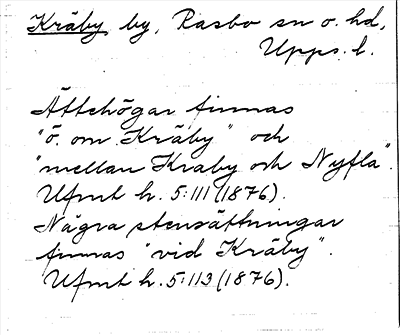 Kråby by, Rasbo sn o. hd,
Upps. l.
Ättehögar finnas
"ö. om Kråby" och
"mellan Kraby och Nyfla".
Ufmt h. 5:111 (1876).
Några stensättningar
finnas "vid Kråby".
Ufmt h. 5:113 (1876).